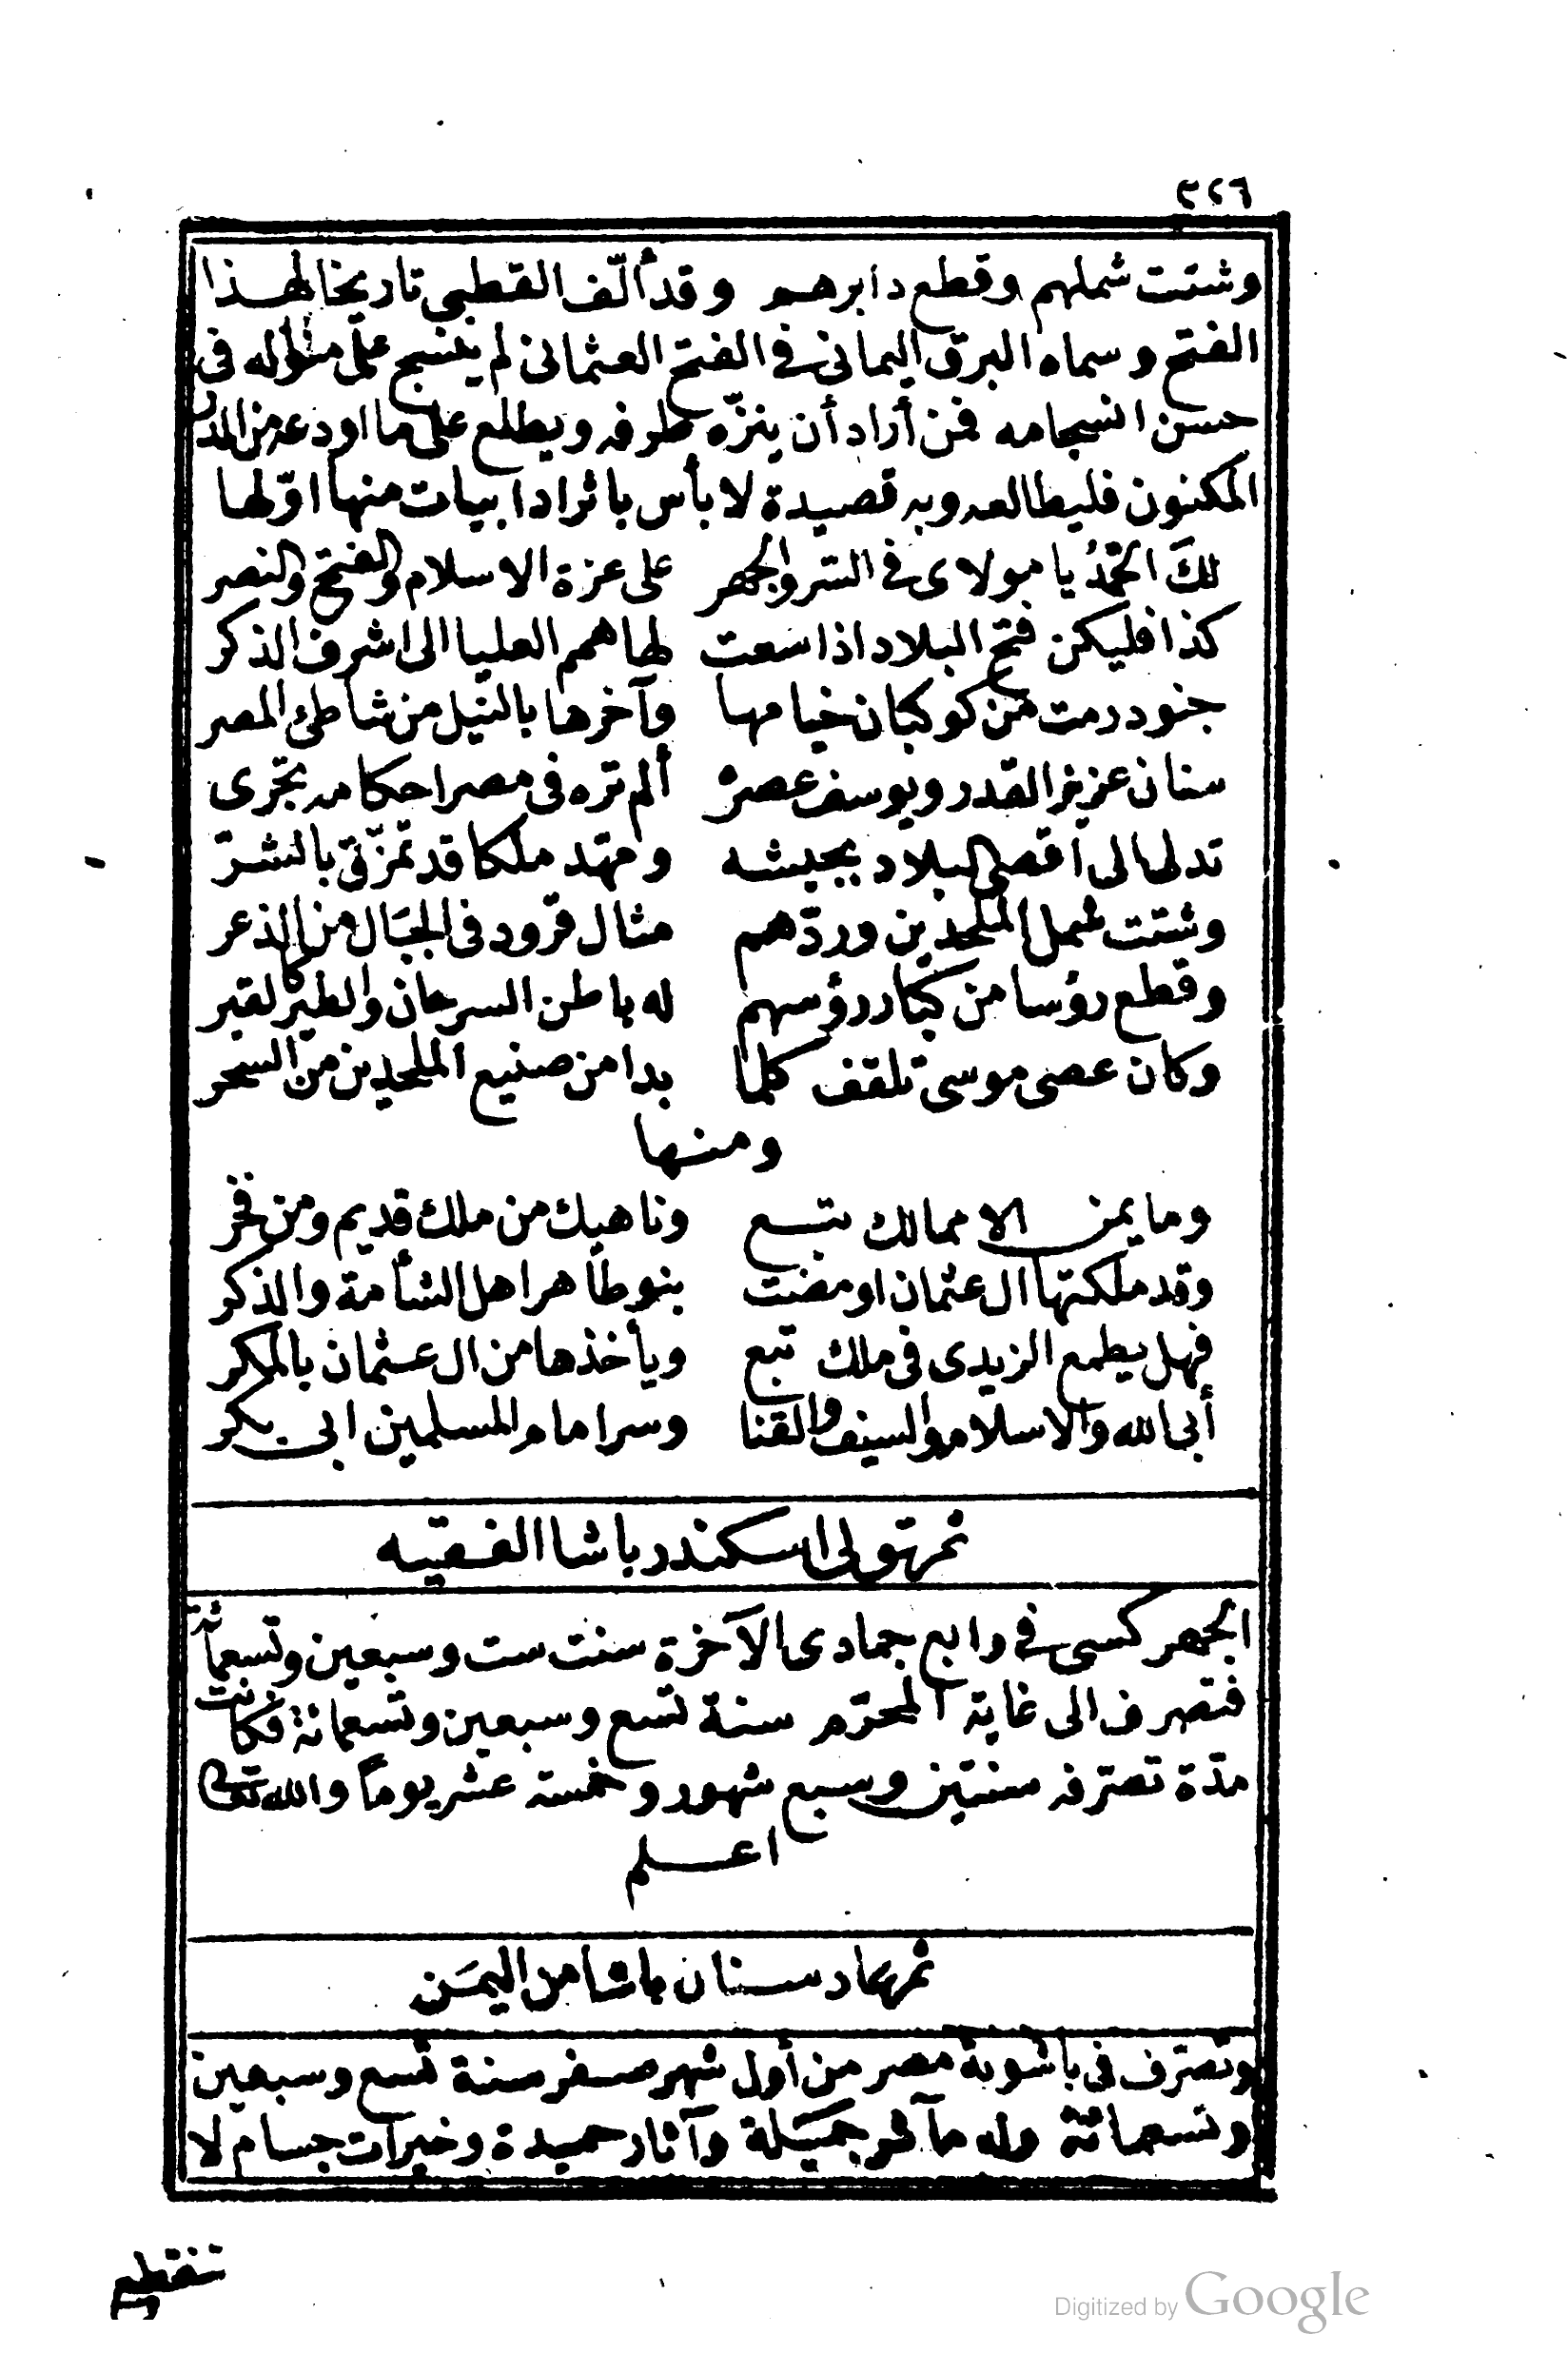 ٣٢٦
وشتت شملهم وقطع دابرهم وقد ألّف القطبي تاريخا لهذا
الفتح وسماه البرق اليماني في الفتح العثماني لم ينسج على منواله في
حسن انسجامه فمن أراد أن ينزّه طرفه ويطلع على ما اودعه من الدر
المكنون فليطالعه وبه قصيدة لا بأس باثراد ابيات منها اوّلها
لك الحمدُ يا مولاى في السّر والجهر على عزة الاسلام والفتح والنصر
كذا فليكن فتح البلاد اذا سعت لها همم العليا الى اشرف الذكر
جنود رمت من كوكبان خيامها وآخرها بالنيل من شاطئ المصر
سنان عزيز القدر ويوسف عصره ألم تره في مصر احكامه تجرى
تدلها الى أقصى البلاد بجيشه ومهّد ملكا قد تمزّق بالشرّ
وشتت شمل الملحدين وردّهم مثال قرود في الجبال من الذعر
وقطع رؤسا من كبار رؤسهم له باطن السرحان والطير كالقبر
وكان عصى موسى تلقف كلما بدا من صنيع الملحدين من السحر
ومنها
وما يمن الا ممالك تبع وناهيك من ملك قديم ومن فخر
وقد ملكتها ال عثمان او مضت بنو طاهر اهل الشأمة والذكر
فهل يطمع الزيدى فى ملك تبع ويأخذها من ال عثمان بالمكر
أبى الله والاسلام والسيف والقنا وسر امام المسلمين ابى بكر
ثم تولى اسكندر باشا الفقيه
الجهركسى في رابع جمادى الآخرة سنت ست وسبعين وتسعمائة
فتصرف الى غاية المحرّم سنة تسع وسبعين وتسعمائة فكانت
مدّة تصرّفه سنتين وسبع شهور وخمسة عشر يوماً والله تعالى
اعلم
ثم عاد سنان باشا من اليمَن
وتصرّف فى باشوية مصر من أول شهر صفر سنة تسع وسبعين
وتسعمائة وله مآثر جميلة وآثار حميدة وخيرات جسام لا
تنقطع
Digitized by Google